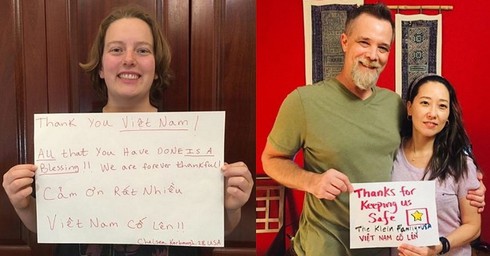 Thank You Việt Nam!
All that You have DONE IS A
Blessing!! We are forever thankful!
Cảm Ơn Rất Nhiều
Việt Nam Cố Lên!!
Chelsea USA
Thanks for
Keeping us
Safe
The Klein Family-USA
VIỆT NAM CỐ LÊN